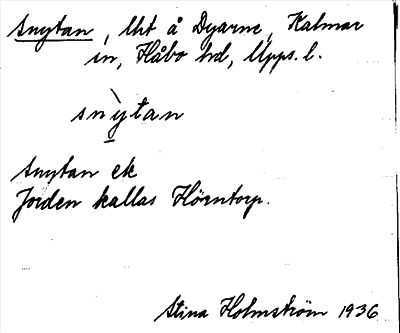 Snytan, lht å Dyarne, Kalmar
sn, Håbo hd, Upps. l.
snỳtan
Snytan ek
Jorden kallas Hörntorp.
Stina Holmström 1936